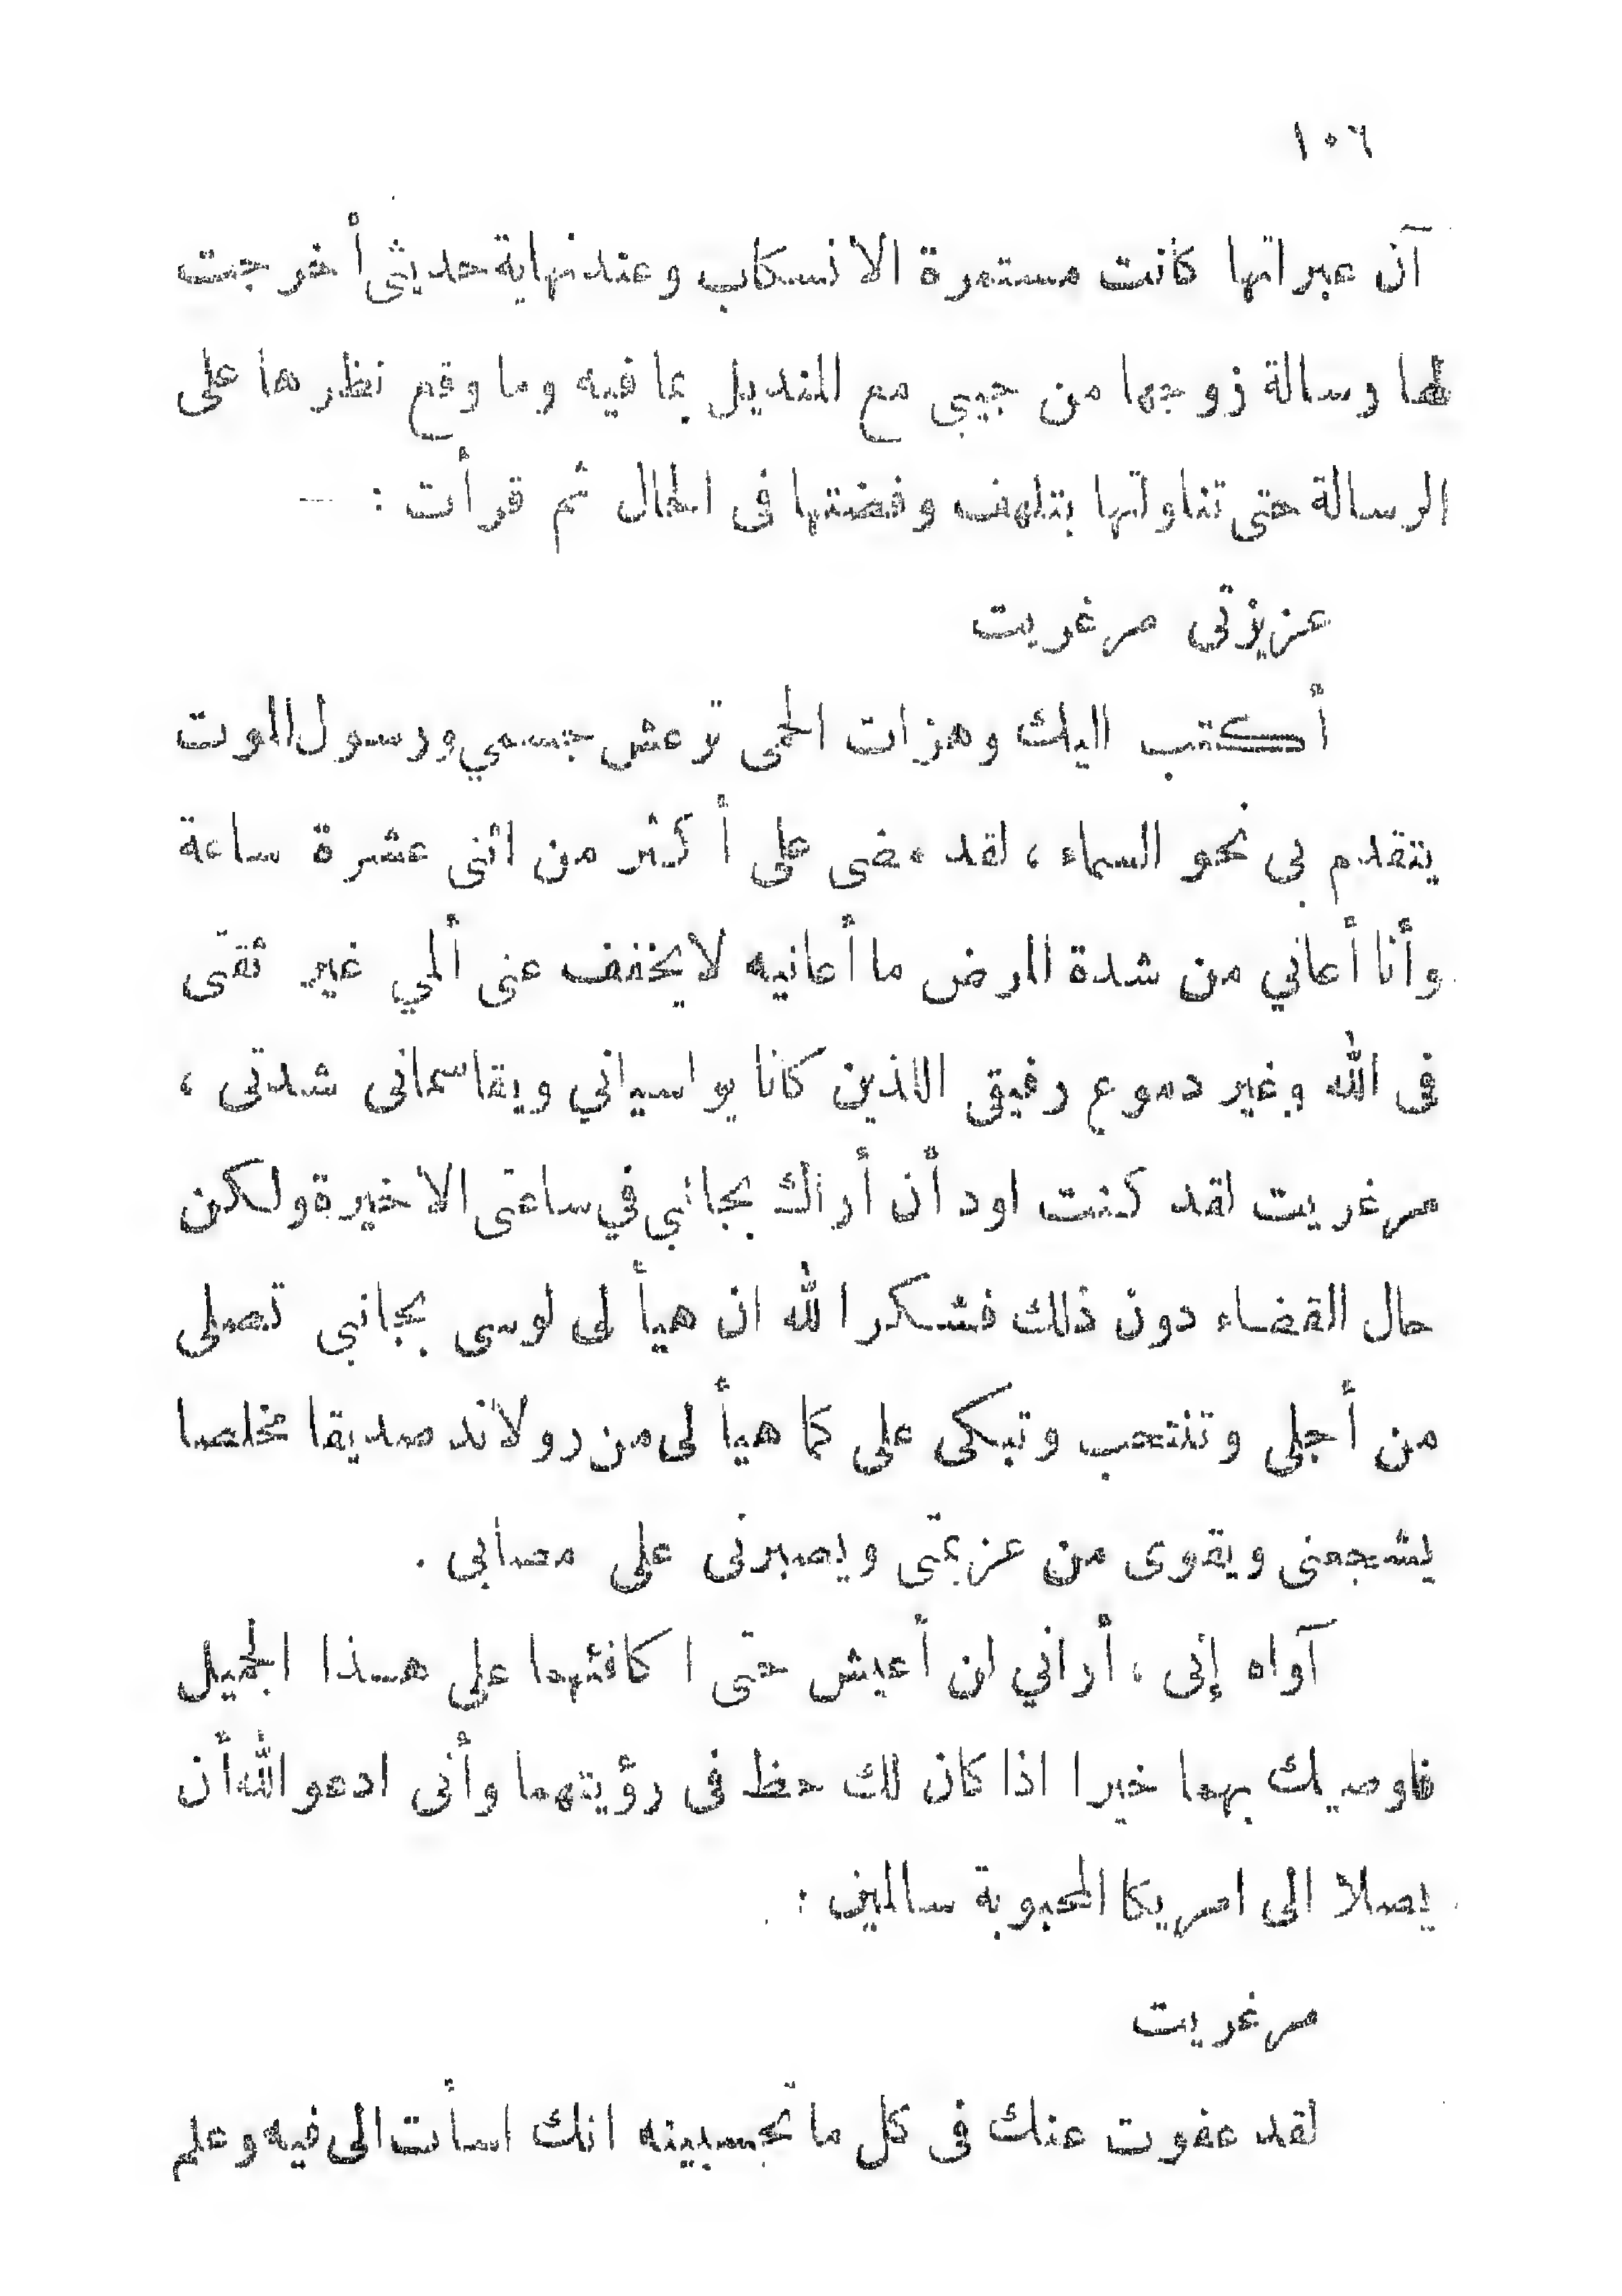 ١٠٦
آن عبراتها كانت مستمرة الانسكاب وعند نهاية حديثى أخرجت
لها رسالة زوجها من جيبى مع المنديل بما فيه وما وقع نظرها على
الرسالة حتى تناولتها بتلهف وفضتها فى الحال ثم قرأت : —
عزيزتى مرغريت
أكتب اليك وهزات الحمى ترعش جسمي ورسول الموت
يتقدم بى نحو السماء ، لقد مضى على أكثر من اثنى عشرة ساعة
وأنا أعاني من شدة المرض ما أعانيه لا يخفف عنى ألمي غير ثقتى
فى الله وغير دموع رفيقى اللاذين كانا يواسياني ويقاسمانى شدتى ،
مرغريت لقد كنت اود أن أراك بجانبي في ساعتى الاخيرة ولكن
حال القضاء دون ذلك فشكرا لله ان هيأ لى لوسى بجانبى تصلى
من أجلى وتنتحب وتبكى على كما هيأ لى من رولاند صديقا مخلصا
يشجعنى ويقوى من عزيمتى ويصبرنى على مصابى .
آواه إنى ، أراني لن أعيش حتى اكافئهما على هذا الجميل
فاوصيك بهما خيرا اذا كان لك حظ فى رؤيتهما وأنى ادعو الله أن
يصلا الى امريكا المحبوبة سالمين :
مرغريت
لقد عفوت عنك فى كل ما تحسبينه انك اسأت الى فيه وعلم